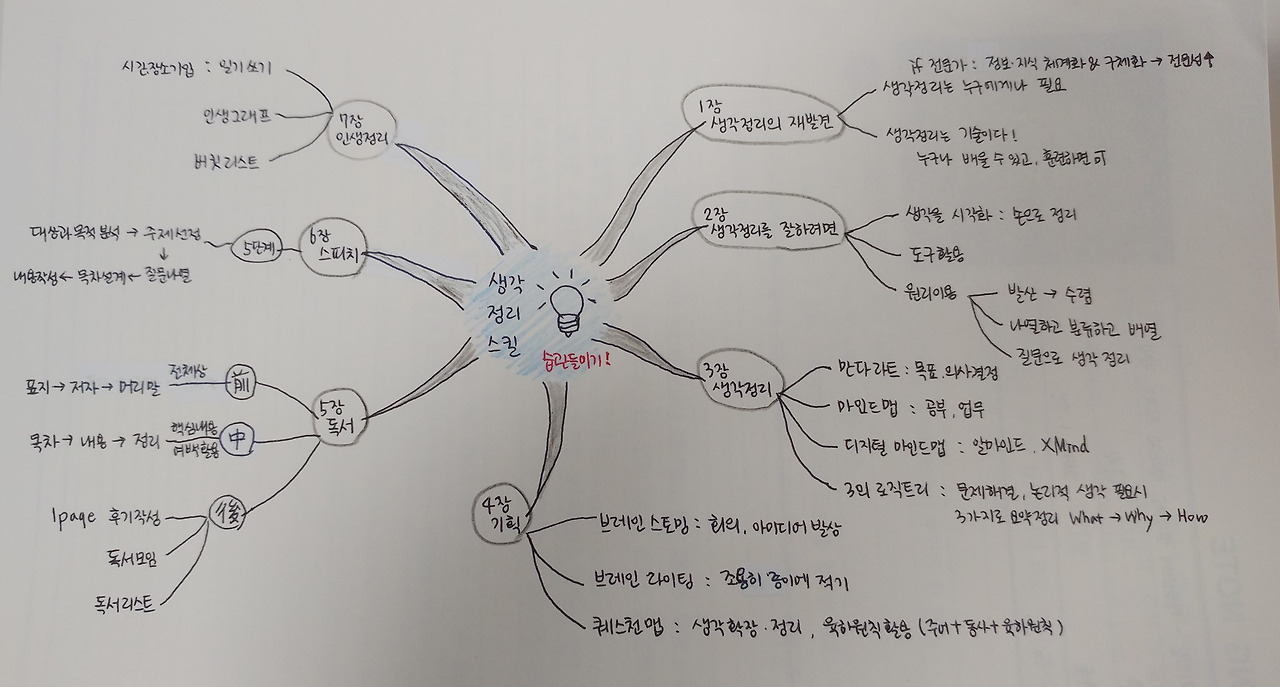 생각
정리
스킬
습관들이기!
1장
생각정리의 재발견
if 전문가 : 정보·지식 체계화 & 구체화 → 전문성↑
생각정리는 누구에게나 필요
생각정리는 기술이다!
누구나 배울 수 있고, 훈련하면 可
2장
생각정리를 잘하려면
생각을 시각화 : 손으로 정리
도구활용
원리이용
발산 → 수렴
나열하고 분류하고 배열
질문으로 생각 정리
3장
생각정리
만다라트 : 목표, 의사결정
마인드맵 : 공부, 업무
디지털 마인드맵 : 알마인드, XMind
3의 로직트리 : 문제해결, 논리적 생각 필요시
3가지로 요약정리 What → Why → How
4장
기획
브레인 스토밍 : 회의, 아이디어 발상
브레인 라이팅 : 조용히 종이에 적기
퀘스천맵 : 생각확장·정리, 육하원칙활용 (주어+동사+육하원칙)
5장
독서
前
전체상
표지 → 저자 → 머리말
中
핵심내용
여백활용
목차 → 내용 → 정리
後
1page 후기작성
독서모임
독서리스트
6장
스피치
5단계
대상과 목적 분석 → 주제선정
↓
내용작성 ← 목차설계 ← 질문나열
7장
인생정리
시간,장소기입 : 일기쓰기
인생그래프
버킷리스트